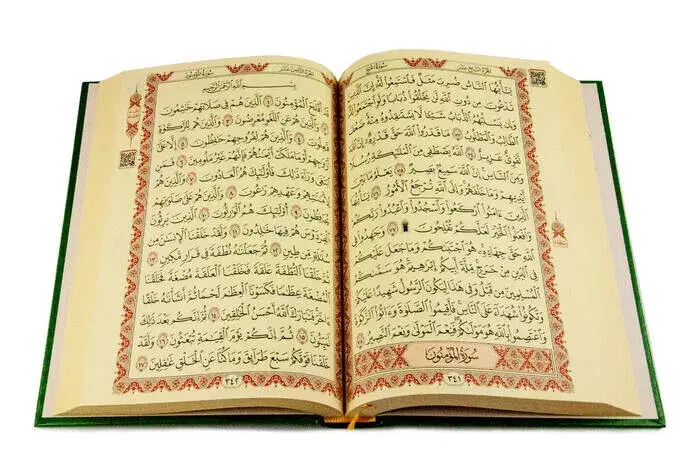 الجزء السابع عشر سورة الحج
يَٰٓأَيُّهَا ٱلنَّاسُ ضُرِبَ مَثَلٌ فَٱسْتَمِعُوا۟ لَهُۥٓ إِنَّ ٱلَّذِينَ
تَدْعُونَ مِن دُونِ ٱللَّهِ لَن يَخْلُقُوا۟ ذُبَابًا وَلَوِ ٱجْتَمَعُوا۟ لَهُۥ
وَإِن يَسْلُبْهُمُ ٱلذُّبَابُ شَيْـًٔا لَّا يَسْتَنقِذُوهُ مِنْهُ ضَعُفَ
ٱلطَّالِبُ وَٱلْمَطْلُوبُ ٧٣ مَا قَدَرُوا۟ ٱللَّهَ حَقَّ قَدْرِهِۦٓ إِنَّ ٱللَّهَ
لَقَوِىٌّ عَزِيزٌ ٧٤ ٱللَّهُ يَصْطَفِى مِنَ ٱلْمَلَٰٓئِكَةِ رُسُلًا
وَمِنَ ٱلنَّاسِ إِنَّ ٱللَّهَ سَمِيعٌۢ بَصِيرٌ ٧٥ يَعْلَمُ مَا بَيْنَ
أَيْدِيهِمْ وَمَا خَلْفَهُمْ وَإِلَى ٱللَّهِ تُرْجَعُ ٱلْأُمُورُ ٧٦
يَٰٓأَيُّهَا ٱلَّذِينَ ءَامَنُوا۟ ٱرْكَعُوا۟ وَٱسْجُدُوا۟ وَٱعْبُدُوا۟ رَبَّكُمْ
وَٱفْعَلُوا۟ ٱلْخَيْرَ لَعَلَّكُمْ تُفْلِحُونَ ٧٧ وَجَٰهِدُوا۟ فِى
ٱللَّهِ حَقَّ جِهَادِهِۦ هُوَ ٱجْتَبَىٰكُمْ وَمَا جَعَلَ عَلَيْكُمْ
فِى ٱلدِّينِ مِنْ حَرَجٍ مِّلَّةَ أَبِيكُمْ إِبْرَٰهِيمَ هُوَ سَمَّىٰكُمُ
ٱلْمُسْلِمِينَ مِن قَبْلُ وَفِى هَٰذَا لِيَكُونَ ٱلرَّسُولُ شَهِيدًا عَلَيْكُمْ
وَتَكُونُوا۟ شُهَدَآءَ عَلَى ٱلنَّاسِ فَأَقِيمُوا۟ ٱلصَّلَوٰةَ وَءَاتُوا۟ ٱلزَّكَوٰةَ
وَٱعْتَصِمُوا۟ بِٱللَّهِ هُوَ مَوْلَىٰكُمْ فَنِعْمَ ٱلْمَوْلَىٰ وَنِعْمَ ٱلنَّصِيرُ ٧٨
سُورَةُ ٱلْمُؤْمِنُونَ
٣٤١
الجزء الثامن عشر سورة المؤمنون
بِسْمِ ٱللَّهِ ٱلرَّحْمَٰنِ ٱلرَّحِيمِ
قَدْ أَفْلَحَ ٱلْمُؤْمِنُونَ ١ ٱلَّذِينَ هُمْ فِى صَلَاتِهِمْ خَٰشِعُونَ
٢ وَٱلَّذِينَ هُمْ عَنِ ٱللَّغْوِ مُعْرِضُونَ ٣ وَٱلَّذِينَ هُمْ لِلزَّكَوٰةِ
فَٰعِلُونَ ٤ وَٱلَّذِينَ هُمْ لِفُرُوجِهِمْ حَٰفِظُونَ ٥ إِلَّا عَلَىٰٓ
أَزْوَٰجِهِمْ أَوْ مَا مَلَكَتْ أَيْمَٰنُهُمْ فَإِنَّهُمْ غَيْرُ مَلُومِينَ ٦ فَمَنِ
ٱبْتَغَىٰ وَرَآءَ ذَٰلِكَ فَأُو۟لَٰٓئِكَ هُمُ ٱلْعَادُونَ ٧ وَٱلَّذِينَ هُمْ
لِأَمَٰنَٰتِهِمْ وَعَهْدِهِمْ رَٰعُونَ ٨ وَٱلَّذِينَ هُمْ عَلَىٰ صَلَوَٰتِهِمْ
يُحَافِظُونَ ٩ أُو۟لَٰٓئِكَ هُمُ ٱلْوَٰرِثُونَ ١٠ ٱلَّذِينَ يَرِثُونَ
ٱلْفِرْدَوْسَ هُمْ فِيهَا خَٰلِدُونَ ١١ وَلَقَدْ خَلَقْنَا ٱلْإِنسَٰنَ مِن
سُلَٰلَةٍ مِّن طِينٍ ١٢ ثُمَّ جَعَلْنَٰهُ نُطْفَةً فِى قَرَارٍ مَّكِينٍ ١٣
ثُمَّ خَلَقْنَا ٱلنُّطْفَةَ عَلَقَةً فَخَلَقْنَا ٱلْعَلَقَةَ مُضْغَةً فَخَلَقْنَا
ٱلْمُضْغَةَ عِظَٰمًا فَكَسَوْنَا ٱلْعِظَٰمَ لَحْمًا ثُمَّ أَنشَأْنَٰهُ خَلْقًا
ءَاخَرَ فَتَبَارَكَ ٱللَّهُ أَحْسَنُ ٱلْخَٰلِقِينَ ١٤ ثُمَّ إِنَّكُم بَعْدَ ذَٰلِكَ
لَمَيِّتُونَ ١٥ ثُمَّ إِنَّكُمْ يَوْمَ ٱلْقِيَٰمَةِ تُبْعَثُونَ ١٦ وَلَقَدْ
خَلَقْنَا فَوْقَكُمْ سَبْعَ طَرَآئِقَ وَمَا كُنَّا عَنِ ٱلْخَلْقِ غَٰفِلِينَ ١٧
٣٤٢